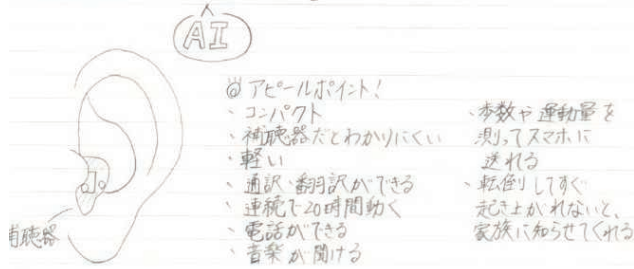 AI
アピールポイント!
・コンパクト
・補聴器だとわかりにくい
・軽い
・通訳・翻訳ができる
・連続で20時間動く
・電話ができる
・音楽が聞ける
・歩数や運動量を
測ってスマホに
送れる
・転倒してすぐ
起き上がれないと、
家族に知らせてくれる
補聴器